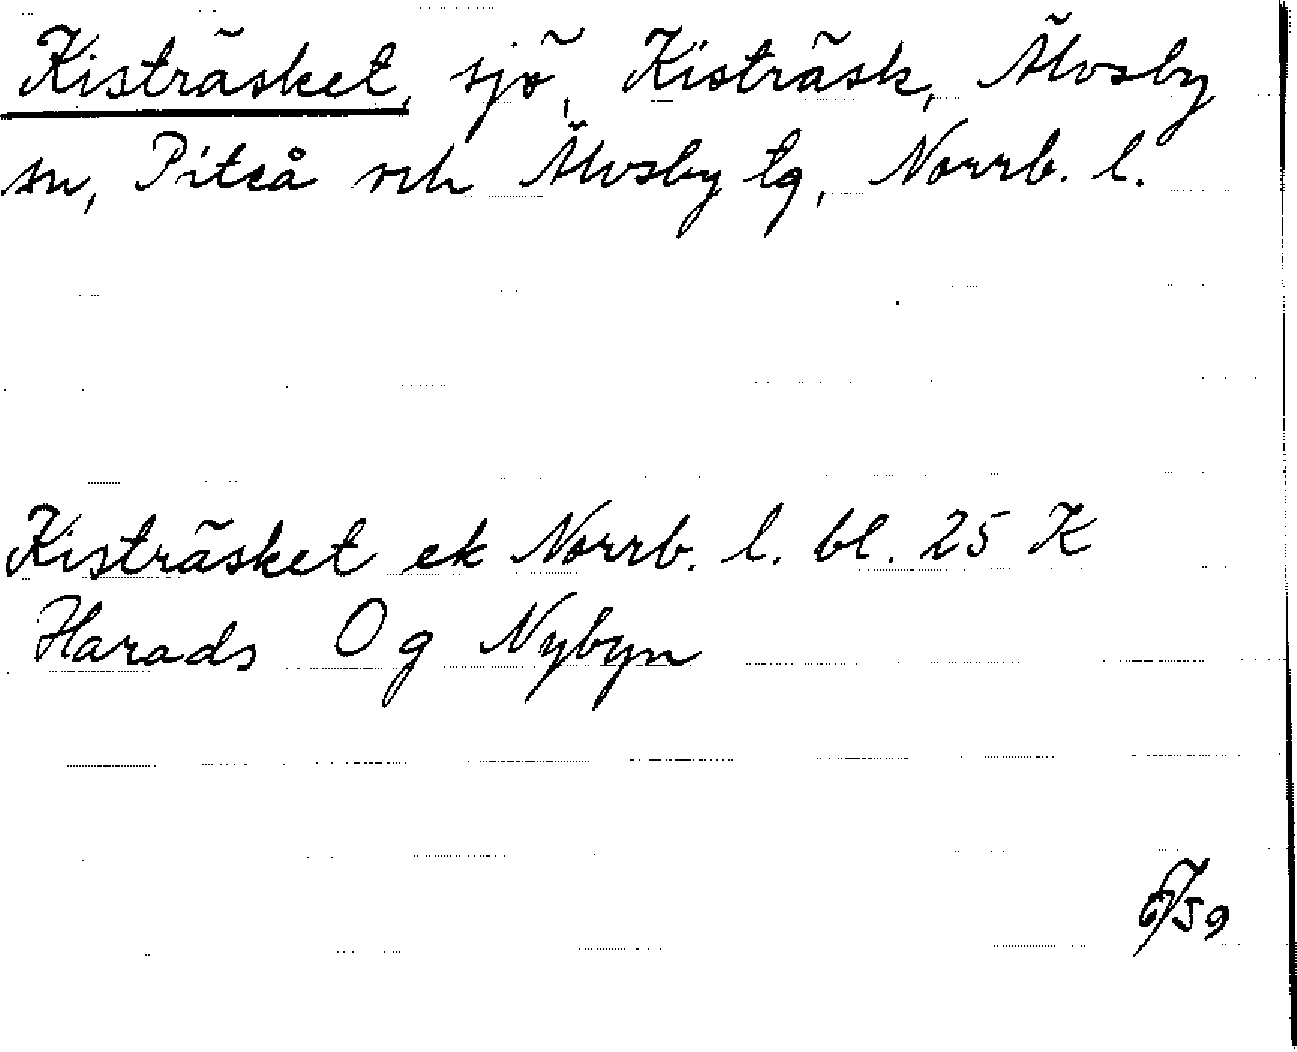 Kisträsket, sjö, Kisträsk, Älvsby
sn, Piteå och Älvsby tg, Norrb. l.
Kisträsket ek Norrb. l. bl. 25 K
Harads O g Nybyn